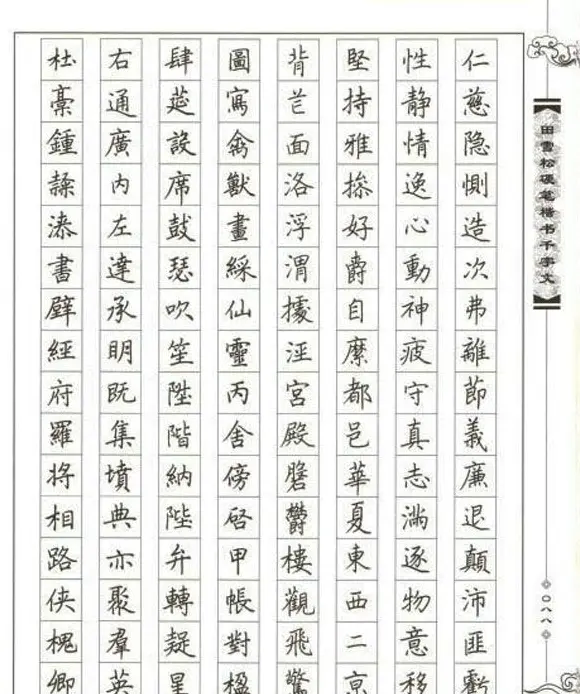 田雪松硬笔楷书千字文
仁慈隐惻造次弗離節義廉退顛沛匪虧
性静情逸心動神疲守真志滿逐物意移
堅持雅操好爵自縻都邑華夏東西二京
背芒面洛浮渭據涇宮殿盤鬱樓觀飛驚
圖寫禽獸畫綵仙靈丙舍傍啓甲帳對楹
肆筵設席鼓瑟吹笙陞階納陛弁轉疑星
右通廣内左達承明既集墳典亦聚羣英
杜稾鍾隸漆書壁經府羅将相路俠槐卿
〇八八